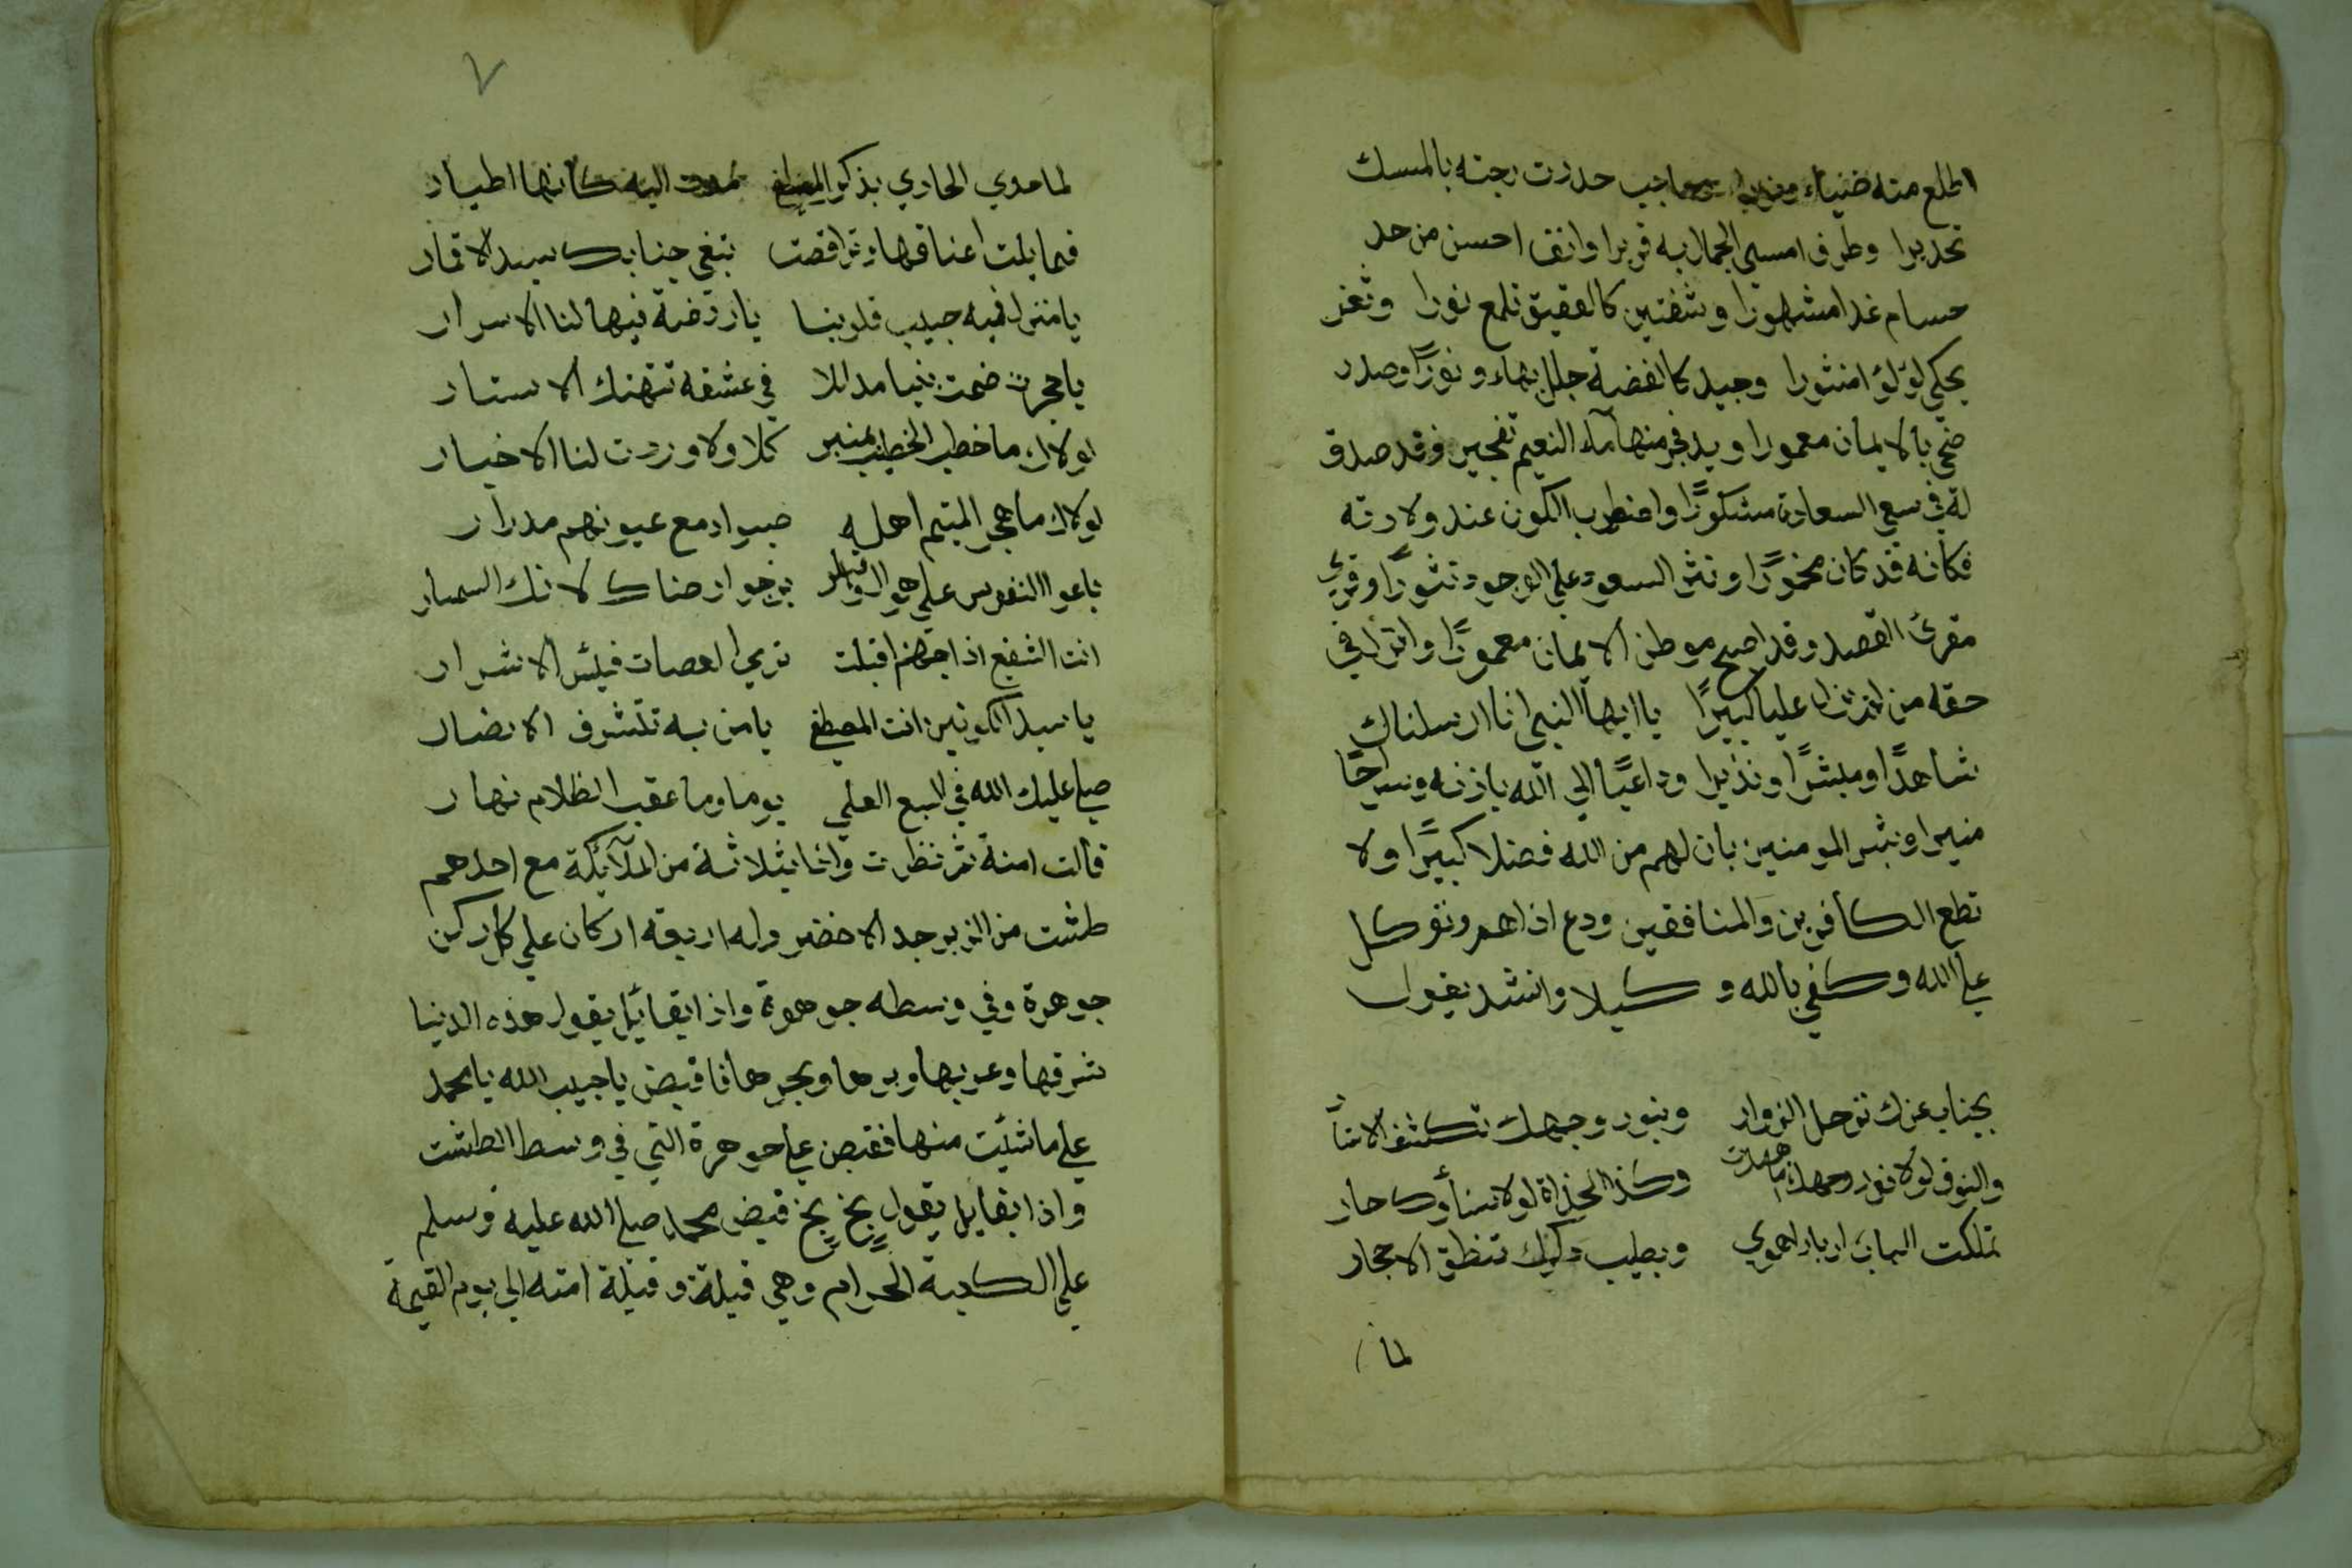 اطلع منه ضياء ونورا وحاجب حددت رجته بالمسك
تحديرا وطرف امسي الجمال به قريرا وانف احسن من حد
حسام غدا مشهورا وشفتين كالعقيق تلمع نورا وثغر
يحكي لؤلؤ امنثورا وجيد كالفضة جلل بهاء ونورًا وصدر
ضحي بالايمان معمورا ويد فجر منها ماء النعيم تفجير وقد صدق
له في سعي السعادة مشكورًا واضطرب الكون عند ولادته
فكانه قد كان مخمورًا ونثر السعود علي الوجود نثورًا وقري
مقرئ القصد وقد اصبح موطن الايمان معمورًا وانزل في
حقه من لم يزل عليا كبيرًا ياايها النبي انا ارسلناك
شاهدًا ومبشرًا ونذيرا وداعيًا الي الله باذنه وسراجًا
منيرا وبشر المومنين بان لهم من الله فضلا كبيرًا ولا
تطع الكافرين والمنافقين ودع اذاهم وتوكل
علي الله وكفي بالله وكيلا وانشد يقول
بجناب عزك ترحل الزوار وبنور وجهك تكشف الاستا
والنوق لولا نور وجهك ما هدت وكذا الحداة لولا سناوك حار
تملكت البان ارباب الهوي وبطيب ذكرك تنطق الاحجار
لما
٧
لما حدي الحادي بذكر المصطفي اليه كانها اطيار
فمايلت اعناقها وتراقصت تبغي جنابك سيد الاقمار
يا منزلا فيه حبيب قلوبنا يا روضة فيها لنا الاسرار
يا حجرت ضمت نبيا مداللا في عشقه تتهتك الاستار
لولاك ما خطب الخطيب بمنبر كلا ولا وردت لنا الاخبار
لولاك ما هجر المتيم اهله صبوا دمع عيونهم مدرار
باعوا النفوس علي هواك يرجوا رضاك لانك السمسار
انت الشفيع اذا جهنم اقبلت ترمي العصات فبئس الاشرار
يا سيد الكونين انت المصطفي يا من به تتشرف الانصار
صلي عليك الله في السبع العلي يوما وما عقب الظلام نهار
قالت امنة ثم نظرت واذا بثلاثة من الملآئكة مع احدهم
طشت من الزبرجد الاخضر وله اربعه اركان علي كل ركن
جوهرة وفي وسطه جوهرة واذا بقائل يقول هذه الدنيا
شرقها وغربها وبرها وبحرها فاقبض يا حبيب الله يا محمد
علي ما شئت منها فقبض علي جوهرة التي في وسط الطشت
واذا بقايل يقول بخ بخ قبض محمد صلي الله عليه وسلم
علي الكعبة الحرام وهي قبلة وقبلة امته الي يوم القيمة